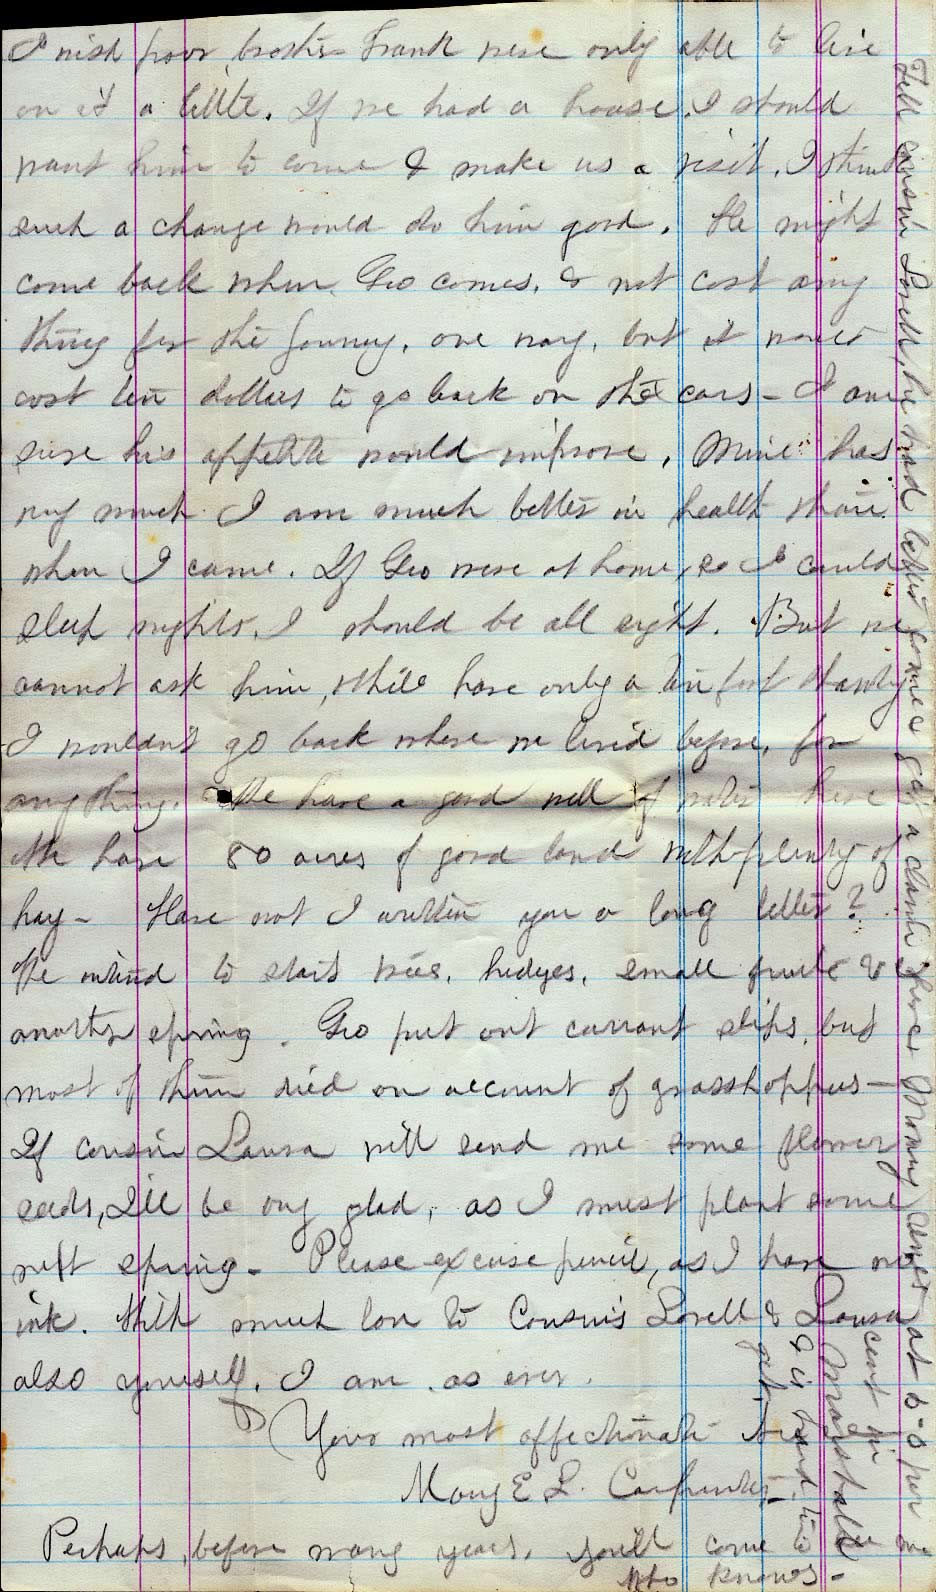 I wish poor brother Frank were only able to live
on it a little. If we had a house I should
want him to come & make us a visit. I think
such a change would do him good. He might
come back when Geo comes, & not cost any
thing for the journey, one way, but it would
cost ten dollars to go back on the cars - I am
sure his appetite would improve. Mine has
very much I am much better in health than
when I came. If Geo were at home, so I could
sleep nights, I should be all right. But we
cannot ask him, while have only a ten foot shanty
I wouldn't go back where we lived before, for
anything. We have a good well of water here
We have 80 acres of good land with plenty of
hay - Have not I written you a long letter?
We intend to start trees, hedges, small fruits &c
another spring. Geo put out currant slips, but
most of them died on account of grasshoppers -
If cousin Laura will send me some flower
seeds, I'll be very glad, as I must plant some
next spring - Please excuse pencil, as I have no
ink. With much love to Cousins Lovell & Laura
also yourself, I am as ever.
Your most affectionate
Mary E L. Carpenter -
Perhaps, before many years, you'll come to
Who knows -
Tell cousin Lovell, he had better come & get a claim here. Money rents at 5-0 per
cent in
Marshall
& is hard to
get.